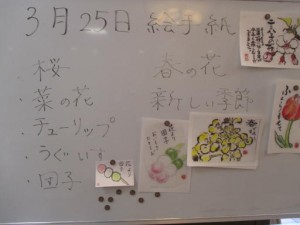 3月25日 絵手紙
・桜
・菜の花
・チューリップ
・うぐいす
・団子
春の花
新しい季節